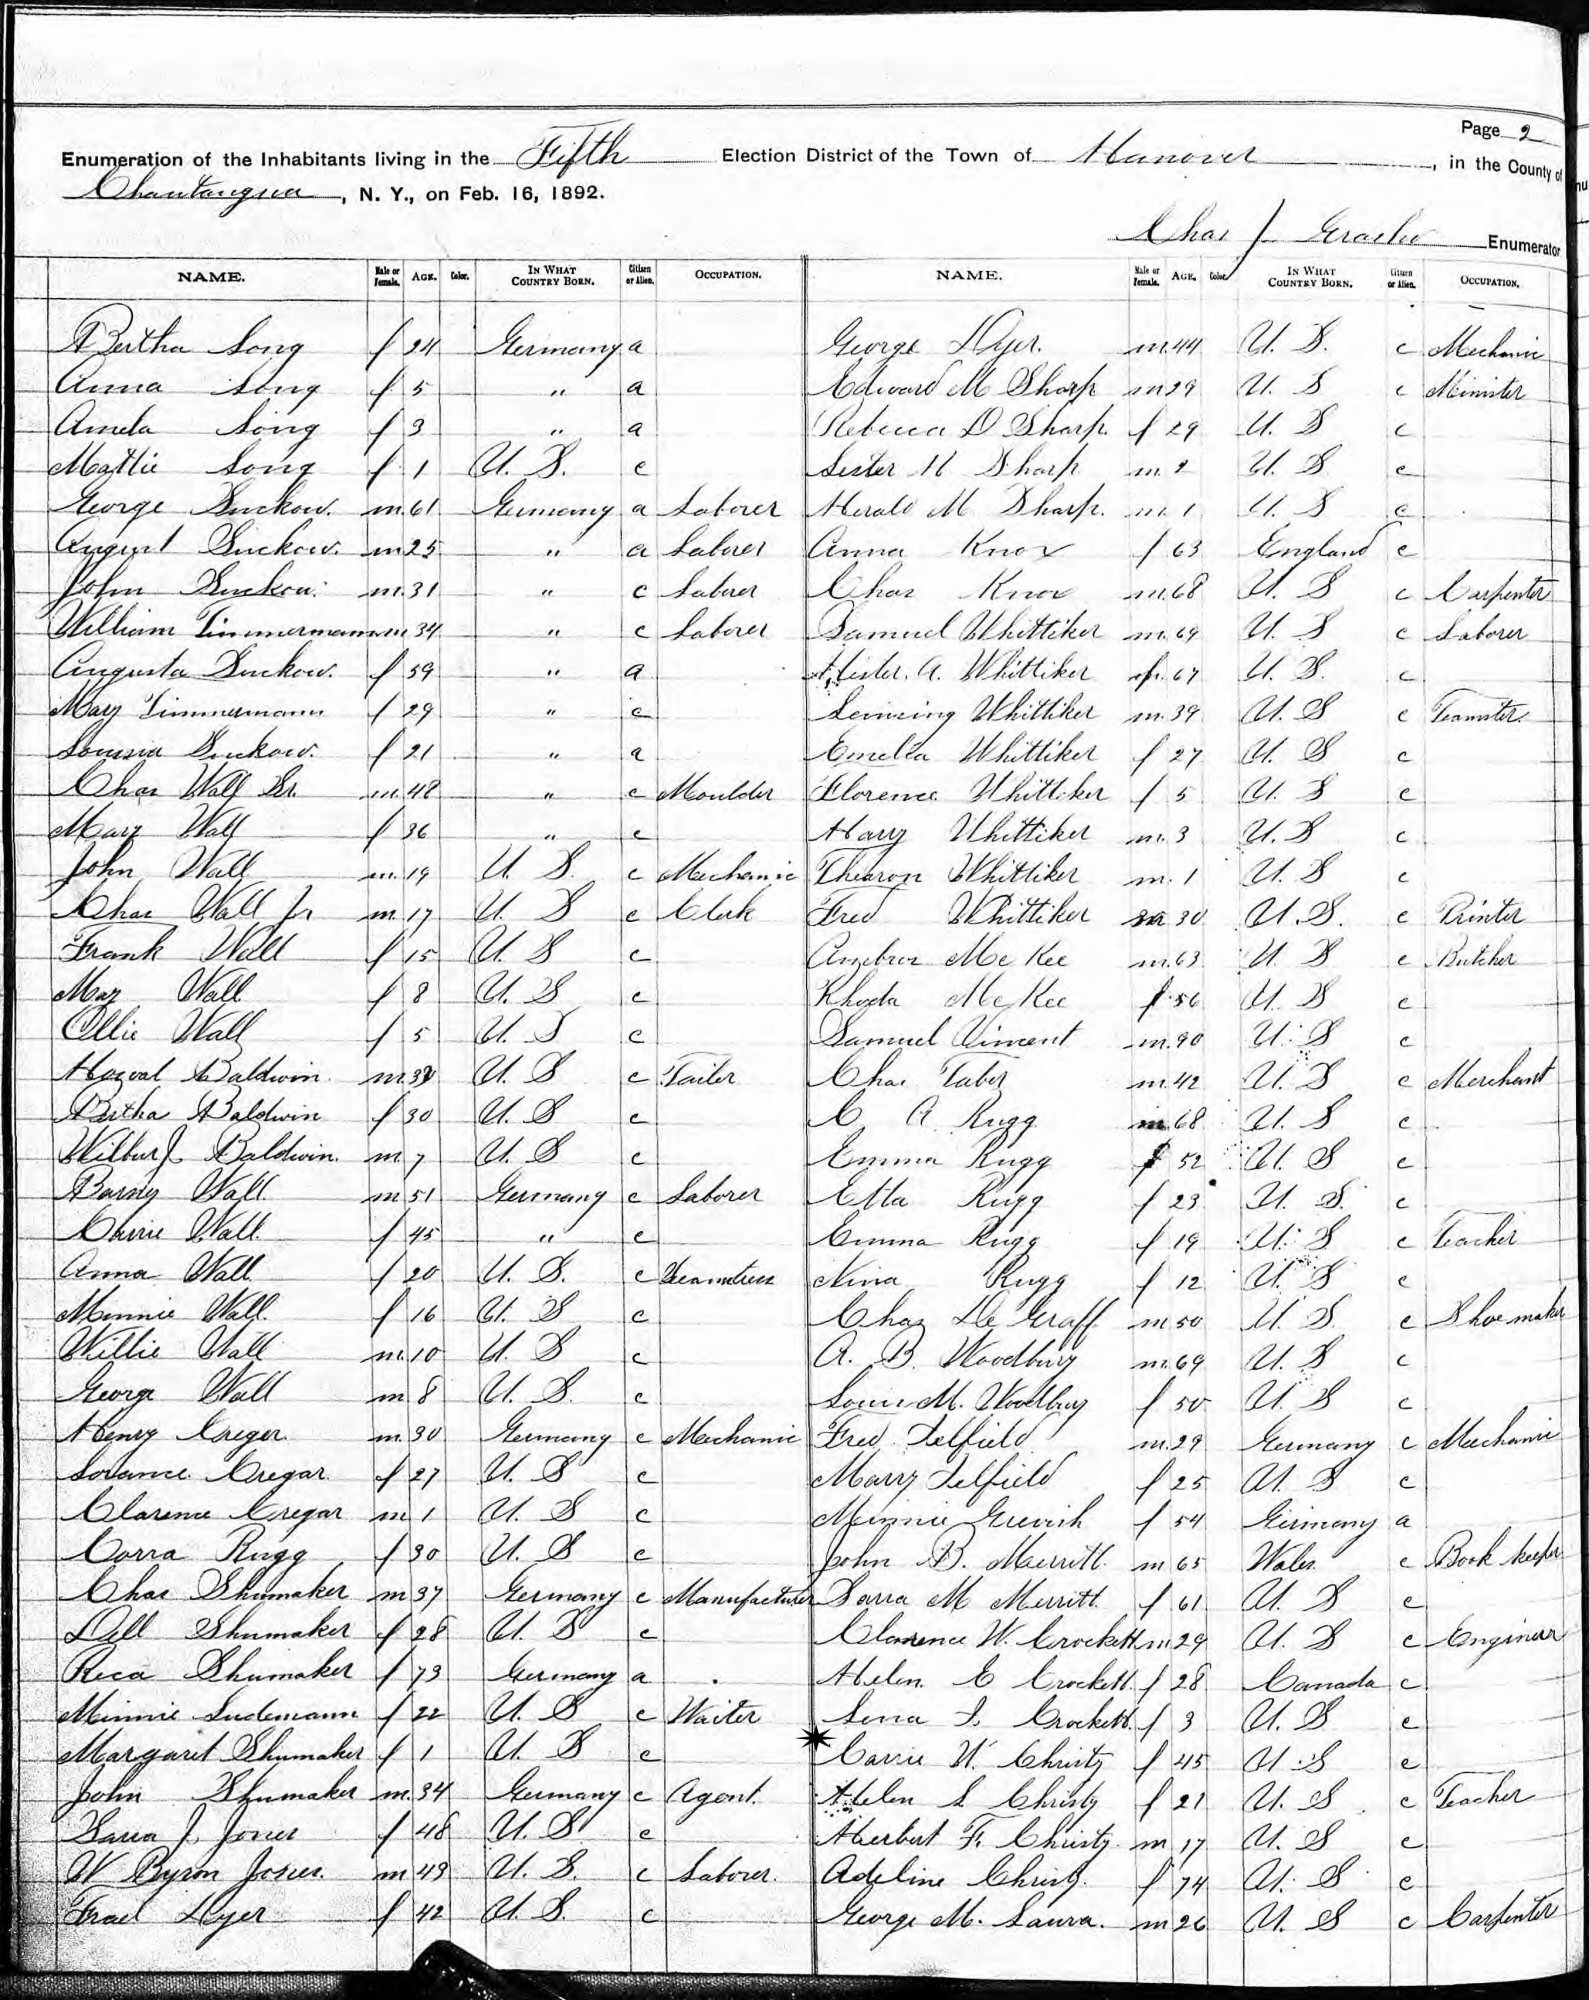 Page 2
Enumeration of the Inhabitants living in the Fifth Election District of the Town of Hanover, in the County of
Chautauqua, N. Y., on Feb. 16, 1892.
Chas J. Enumerator
NAME. Male or Female. AGE. Color. IN WHAT COUNTRY BORN. Citizen or Alien. OCCUPATION.
Bertha Long f 24 Germany a
Anna Long f 5 " a
Amela Long f 3 " a
Mattie Long f 1 U. S. c
George Suckow. m. 61 Germany a Laborer
August Suckow. m 25 " a Laborer
John Suckow. m. 31 " c Laborer
William Timmermann m 34 " c Laborer
Augusta Suckow. f 59 " a
Mary Timmermann f 29 " c
Suckow. f 21 " a
Chas Wall Sr. m. 48 " c Moulder
Mary Wall f 36 " c
John Wall m. 19 U. S. c Mechanic
Chas Wall Jr m. 17 U. S c Clerk
Frank Wall f 15 U. S c
May Wall f 8 U. S c
Ollie Wall f 5 U. S c
Baldwin. m U. S c Tailor
Bertha Baldwin f 30 U. S c
Wilbur J. Baldwin. m. 7 U. S c
Barny Wall m 51 Germany c Laborer
Carrie Wall. f 45 " c
Anna Wall f 20 U. S. c
Minnie Wall. f 16 U. S c
Willie Wall m. 10 U. S c
George Wall m 8 U. S. c
Henry Creger. m. 30 Germany c Mechanic
Cregar. f 27 U. S c
Clarence Cregar m 1 U. S c
Corra Rugg f 30 U. S c
Chas Shumaker m 37 Germany c Manufacturer
Dell Shumaker f 28 U. S c
Rica Shumaker f 73 Germany a
Minnie Ludemann f 22 U. S c Waiter
Margaret Shumaker f 1 U. S c
John Shumaker m. 34 Germany c Agent.
Sarra J. Jones f 48 U. S c
W Byron Jones. m 49 U. S. c Laborer.
Dyer f 42 U. S. c
NAME. Male or Female. AGE. Color IN WHAT COUNTRY BORN. Citizen or Alien. OCCUPATION.
George Dyer. m. 44 U. S. c Mechanic
Edward M Sharp m 29 U. S c Minister
Rebecca D Sharp. f 29 U. S c
Lester H Sharp m. 2 U. S c
Herald M Sharp. m. 1 U. S c
Anna Knox f 63 England c
Chas Knox m. 68 U. S c Carpenter
Samuel Whittiker m. 69 U. S c Laborer
Hester. A. Whittiker f. 67 U. S. c
Whittiker m. 39 U. S c Teamster
Emelia Whittiker f 27 U. S c
Florence Whittiker f 5 U. S c
Harry Whittiker m. 3 U. S c
Thearon Whittiker m. 1 U. S c
Fred Whittiker m 30 U. S. c Printer
Mc Kee m. 63 U. S c Butcher
Rhoda Mc Kee f. 56 U. S c
Samuel Vincent m. 90 U. S c
Chas Tabor m. 42 U. S c Merchant
C A Rugg m. 68 U. S c
Emma Rugg f 52 U. S c
Etta Rugg f 23 U. S. c
Emma Rugg f 19 U. S c Teacher
Nina Rugg f 12 U. S c
Chas De Graff. m 50 U. S. c Shoe maker
A. B. Woodbury m. 69 U. S c
M. Woodbury f 50 U. S c
Fred Telfield m. 29 Germany c Mechanic
Marry Telfield f 25 U. S c
Minnie f 54 Germany a
John B. Merritt. m 65 Wales. c Book keeper
Sarra M Merritt. f 61 U. S c
Clarence W. Crockett m 29 U. S c Engineer
Helen. E Crockett. f 28 Canada c
Lena I. Crockett. f 3 U. S c
Carrie W. Christy f 45 U. S c
Helen L Christy f 21 U. S. c Teacher
Herbert F. Christy. m 17 U. S c
Adeline Christy. f 74 U. S c
George M. Laura. m 26 U. S c Carpenter